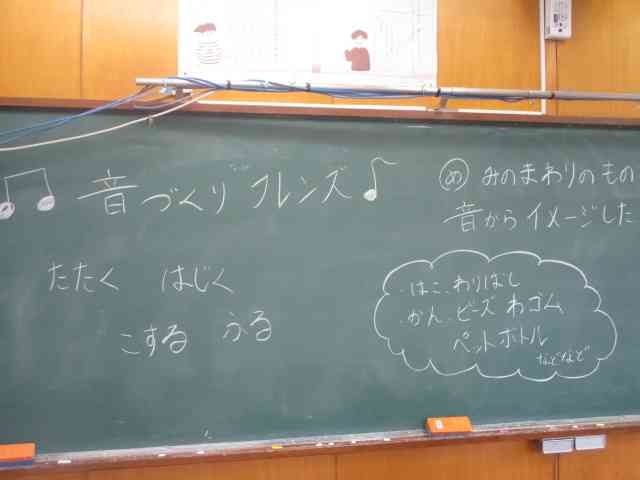 ♫ 音づくりフレンズ♪
たたく はじく
こする ふる
め みのまわりのもの
音からイメージした
・はこ・わりばし
・かん・ビーズ わゴム
ペットボトル
などなど